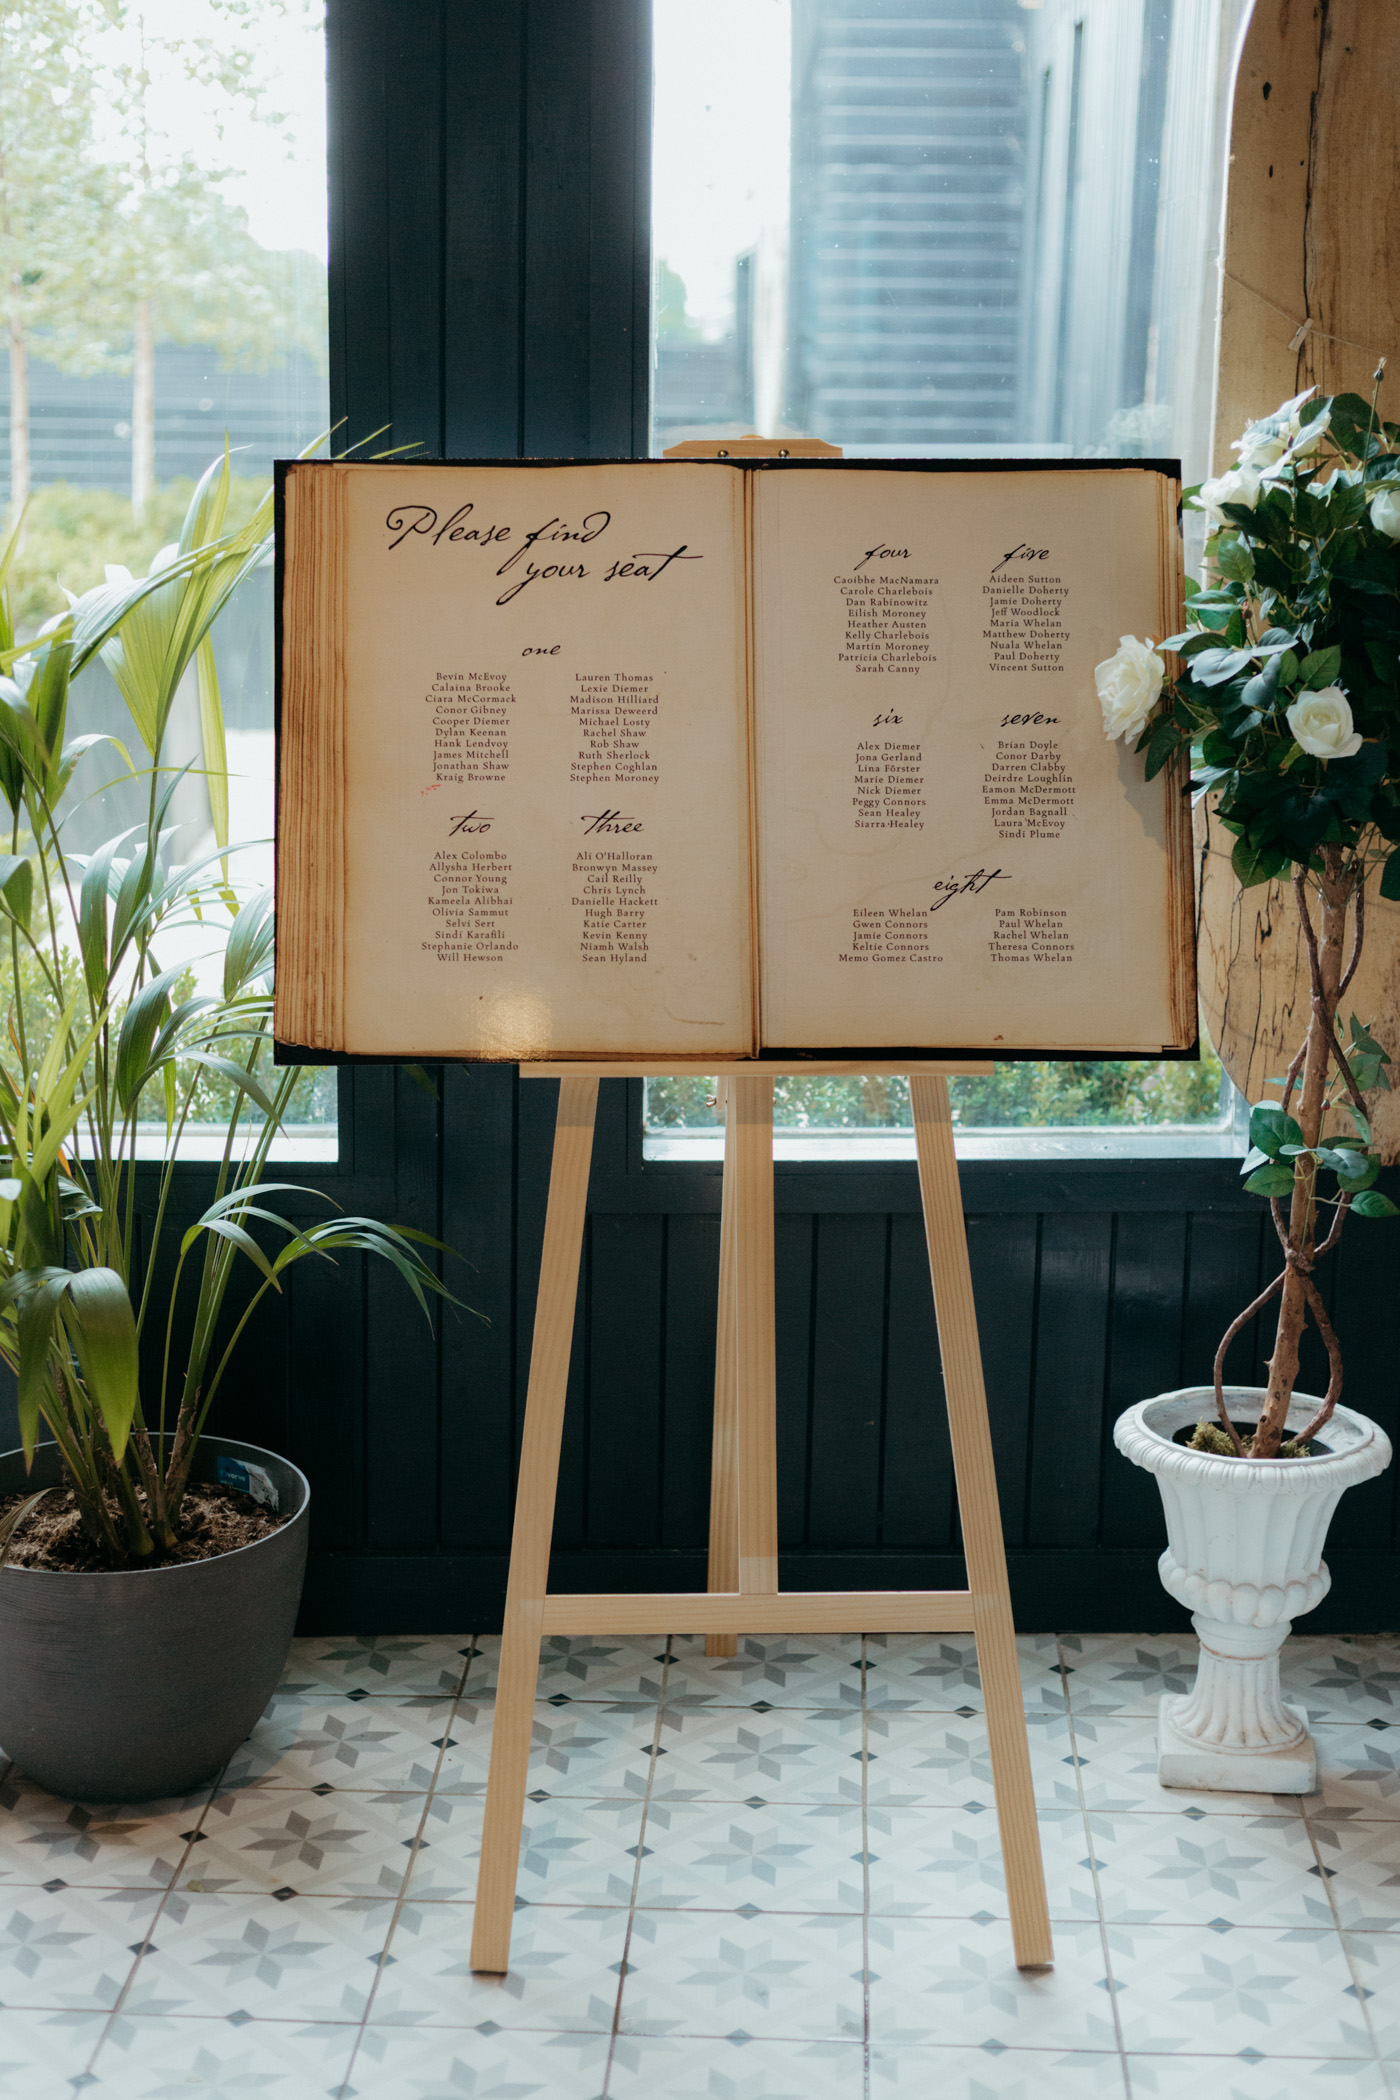 Please find
your seat
one
Bevin McEvoy
Calaina Brooke
Ciara McCormack
Conor Gibney
Cooper Diemer
Dylan Keenan
Hank Lendvoy
James Mitchell
Jonathan Shaw
Kraig Browne
Lauren Thomas
Lexie Diemer
Madison Hilliard
Marissa Deweerd
Michael Losty
Rachel Shaw
Rob Shaw
Ruth Sherlock
Stephen Coghlan
Stephen Moroney
two
Alex Colombo
Allysha Herbert
Connor Young
Jon Tokiwa
Kameela Alibhai
Olivia Sammut
Selvi Sert
Sindi Karafili
Stephanie Orlando
Will Hewson
three
Ali O'Halloran
Bronwyn Massey
Cail Reilly
Chris Lynch
Danielle Hackett
Hugh Barry
Katie Carter
Kevin Kenny
Niamh Walsh
Sean Hyland
four
Caoibhe MacNamara
Carole Charlebois
Dan Rabinowitz
Eilish Moroney
Heather Austen
Kelly Charlebois
Martin Moroney
Patricia Charlebois
Sarah Canny
five
Aideen Sutton
Danielle Doherty
Jamie Doherty
Jeff Woodlock
Maria Whelan
Matthew Doherty
Nuala Whelan
Paul Doherty
Vincent Sutton
six
Alex Diemer
Jona Gerland
Lina Förster
Marie Diemer
Nick Diemer
Peggy Connors
Sean Healey
Siarra Healey
seven
Brian Doyle
Conor Darby
Darren Clabby
Deirdre Loughlin
Eamon McDermott
Emma McDermott
Jordan Bagnall
Laura McEvoy
Sindi Plume
eight
Eileen Whelan
Gwen Connors
Jamie Connors
Keltie Connors
Memo Gomez Castro
Pam Robinson
Paul Whelan
Rachel Whelan
Theresa Connors
Thomas Whelan